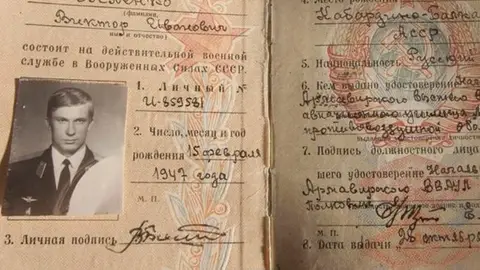 Виктор Иванович
(имя и отчество)
состоит на действительной военной
службе в Вооруженных Силах СССР.
1. Личный №
И-859581
2. Число, месяц и год
рождения 15 февраля
1947 года
М. П.
3. Личная подпись
4. Место рождения
Кабардино-Балка
АССР
5. Национальность Русский
6. Кем выдано удостоверение
Армавирского высшего
авиационного училища
противовоздушной
7. Подпись должностного лица
удостоверение
Армавирского ВВАУЛ
Полковник
М. П.
8. Дата выдачи 26 октября